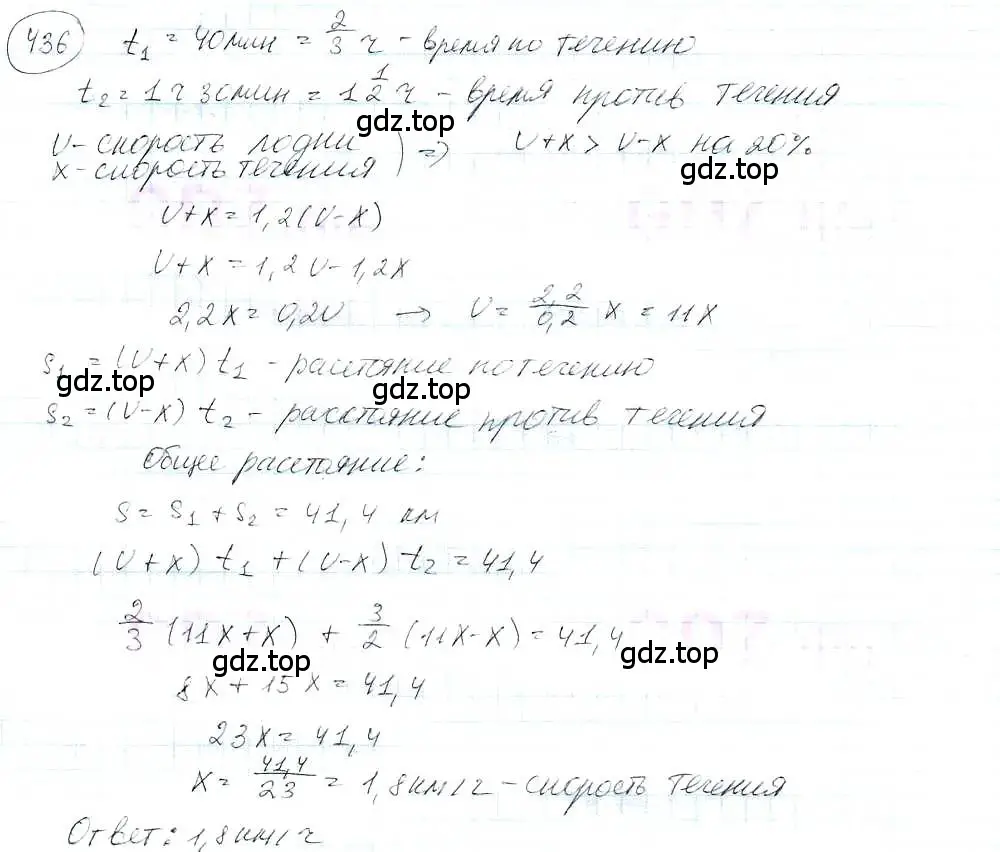 436 t₁ = 40 мин = 2/3 ч - время по течению
t₂ = 1 ч 30 мин = 1 1/2 ч - время против течения
gdz.top gdz.top
υ - скорость лодки ) => υ+x > υ-x на 20%
x - скорость течения
υ+x = 1,2(υ-x)
υ+x = 1,2υ - 1,2x
2,2x = 0,2υ → υ = 2,2/0,2 x = 11x
s₁ = (υ+x) t₁ - расстояние по течению
gdz.top gdz.top
s₂ = (υ-x) t₂ - расстояние против течения
Общее расстояние:
s = s₁ + s₂ = 41,4 км
(υ+x) t₁ + (υ-x) t₂ = 41,4
2/3 (11x+x) + 3/2 (11x-x) = 41,4
gdz.top gdz.top
8x + 15x = 41,4
23x = 41,4
x = 41,4/23 = 1,8 км/ч - скорость течения
Ответ: 1,8 км/ч